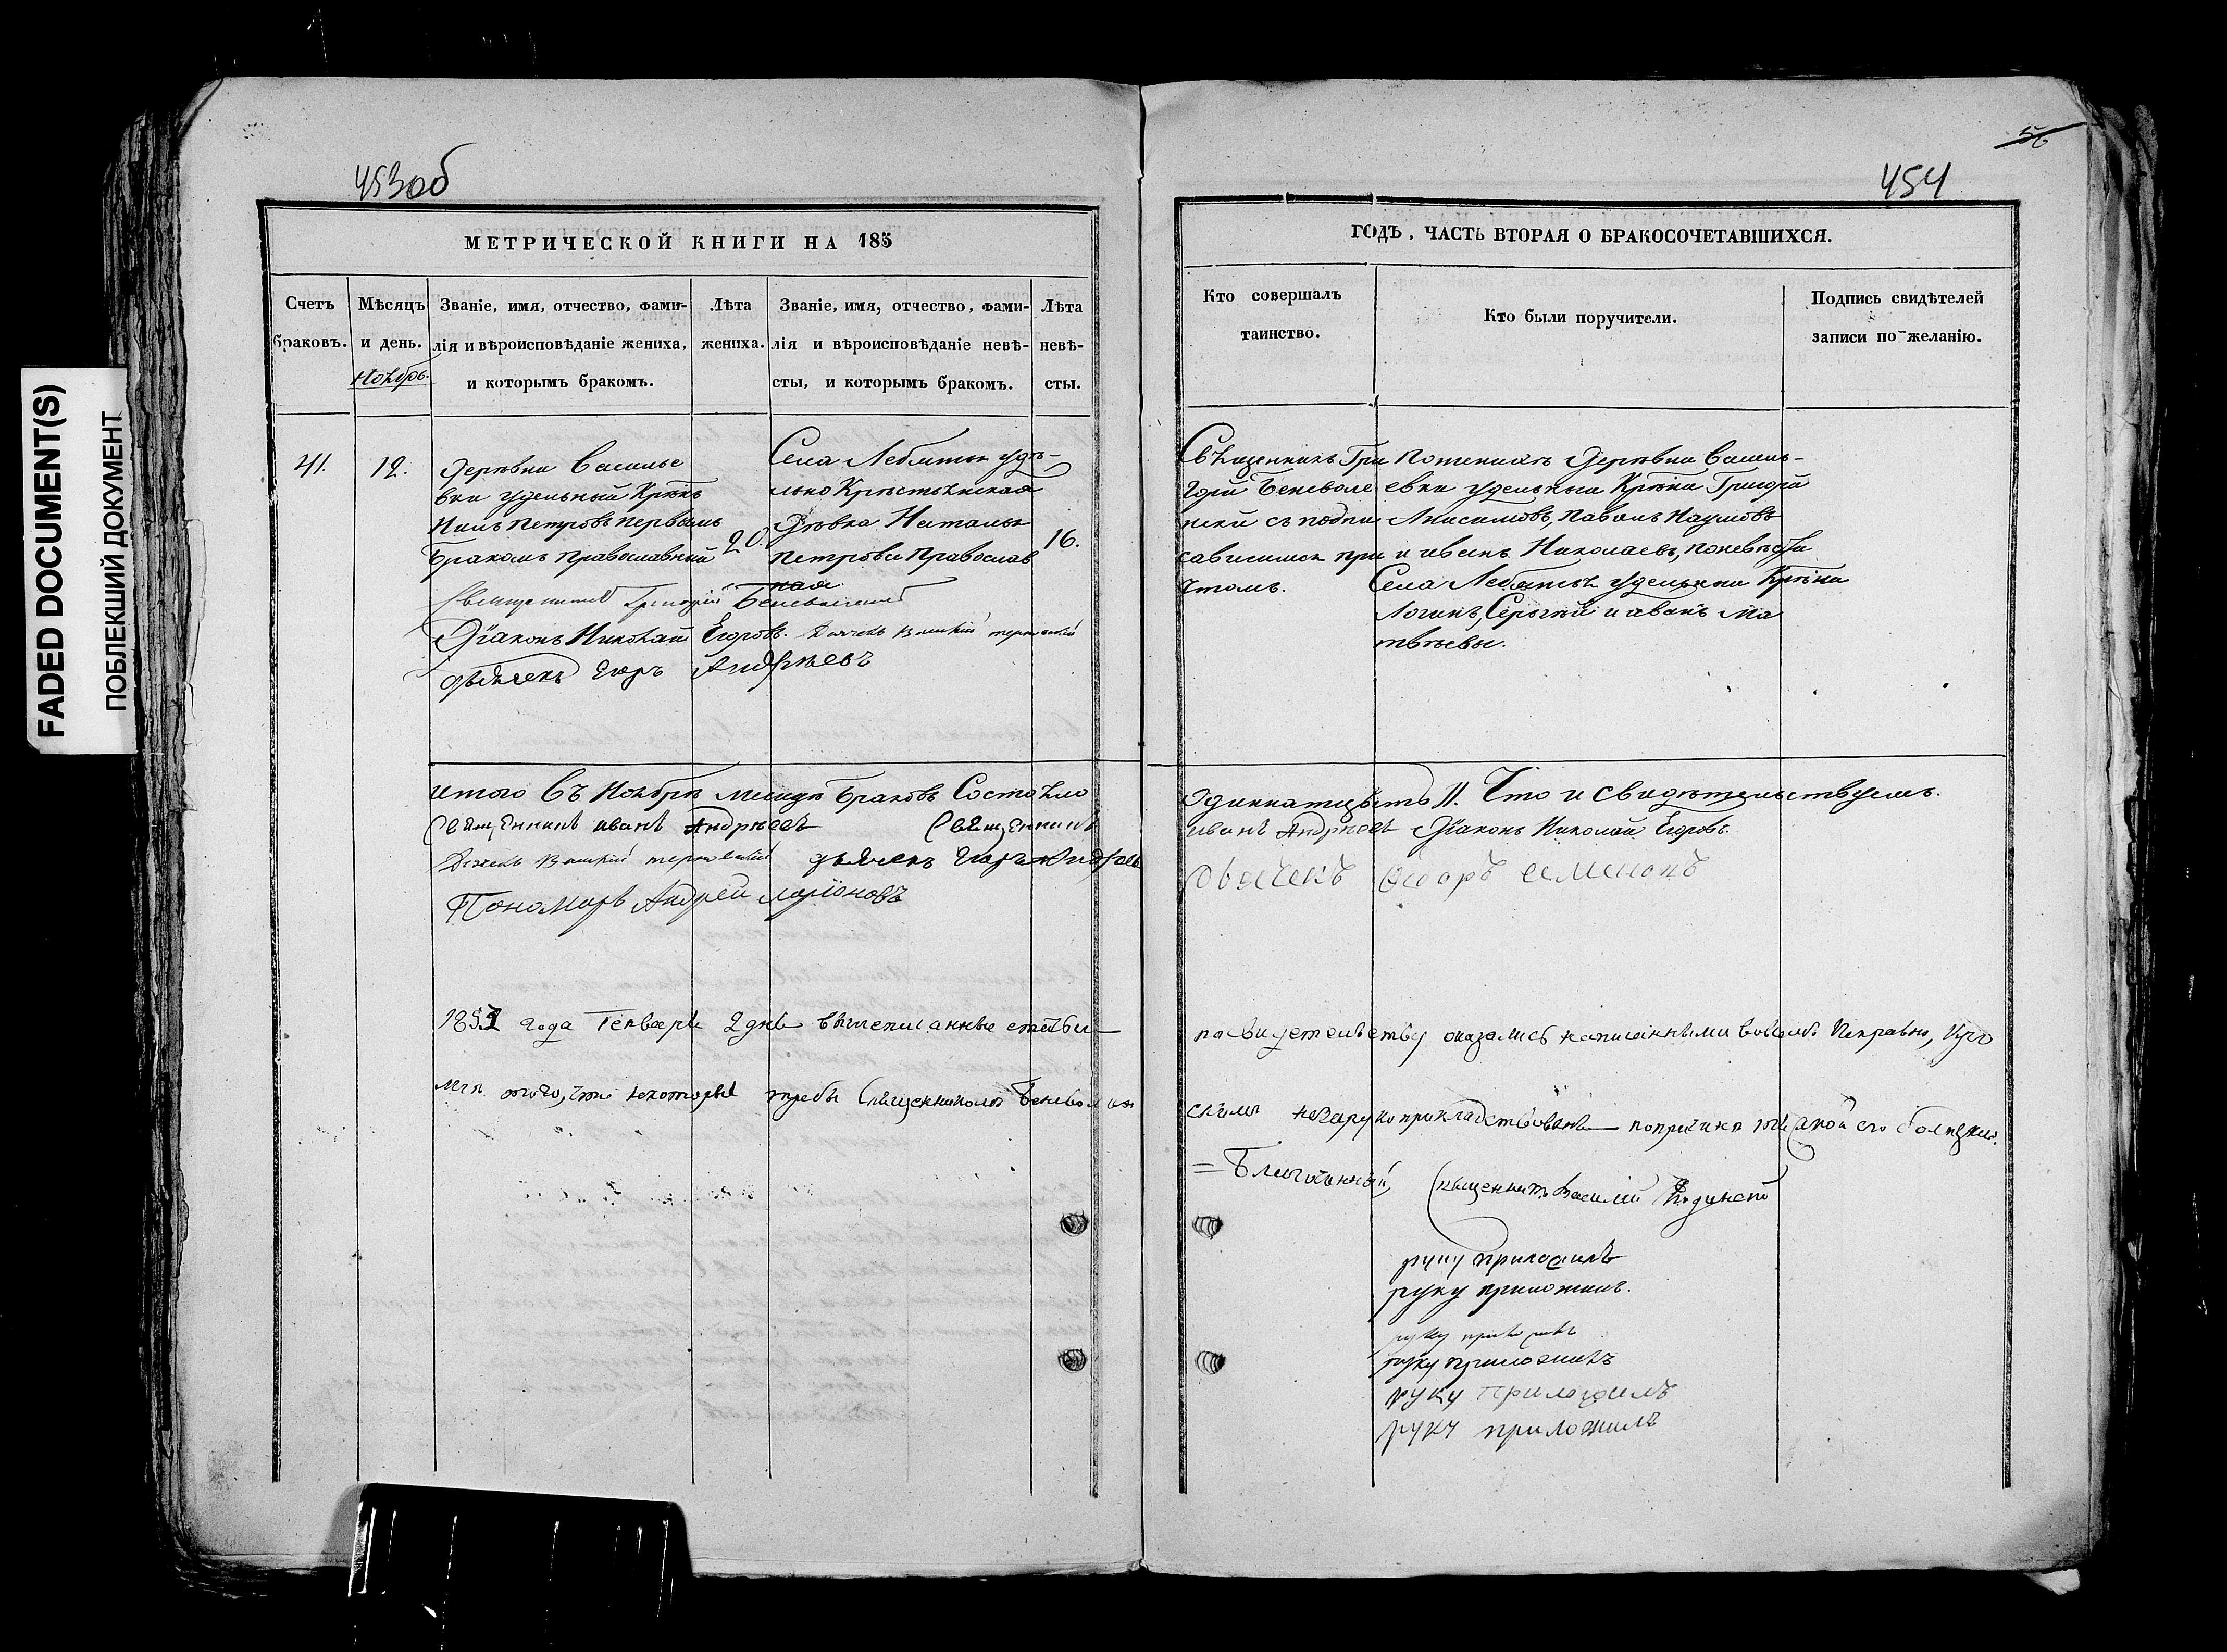 FADED DOCUMENT(S)
ПОБЛЕКШИЙ ДОКУМЕНТ
453об
МЕТРИЧЕСКОЙ КНИГИ НА 185
Счетъ браковъ.
Мѣсяцъ и день.
Ноябрь.
Званіе, имя, отчество, фами-
лія и вѣроисповѣданіе жениха,
и которымъ бракомъ.
Лѣта жениха.
Званіе, имя, отчество, фами-
лія и вѣроисповѣданіе невѣ-
сты, и которымъ бракомъ.
Лѣта невѣ-
сты.
41.
12.
Деревни Василье
вки удельный Крѣнъ
Нилъ Петровъ первымъ
бракомъ православный
20.
Села Лебяжья удѣ-
льно Крестьянская
Дѣвка Наталья
Петрова Православ
ная
16.
Священникъ Григорій Беневоленскій
Діаконъ Николай Егоровъ. Дьячекъ
дьячекъ Егоръ Андрѣевъ
итого въ Ноябрѣ месяцѣ браковъ Состояло
Священникъ иванъ Андрѣевъ Священникъ
Дьячекъ дьячекъ Егоръ Андрѣевъ
Пономарь Андрей Ларіоновъ
года Генваря 2 дня вышеписанные статьи
того, что некоторые требы Священникомъ Беневолен
56
454
ГОДЪ, ЧАСТЬ ВТОРАЯ О БРАКОСОЧЕТАВШИХСЯ.
Кто совершалъ
таинство.
Кто были поручители.
Подпись свидѣтелей
записи по желанію.
Священникъ Гри
горій Беневоле
нски съ подпи
савшимся при
чтомъ.
По женихѣ деревни Василь-
евки удельныи Крѣни Григорій
Анисимовъ, Павелъ Наумовъ
и иванъ Николаевъ, по невѣсти
Села Лебяжья удельныи Крѣни
Логинъ, Сергѣй и иванъ Ма
твѣевы.
одиннатцать 11. Что и свидѣтельствуемъ.
иванъ Андрѣевъ Діаконъ Николай Егоровъ.
дьячекъ семеновъ
по свидетельству оказались написанными
скимъ незарукоприкладствованы по причинѣ
Благочинный, Священникъ Василій
руку приложилъ
руку приложилъ.
руку приложилъ
руку приложилъ
руку приложилъ
руку приложилъ